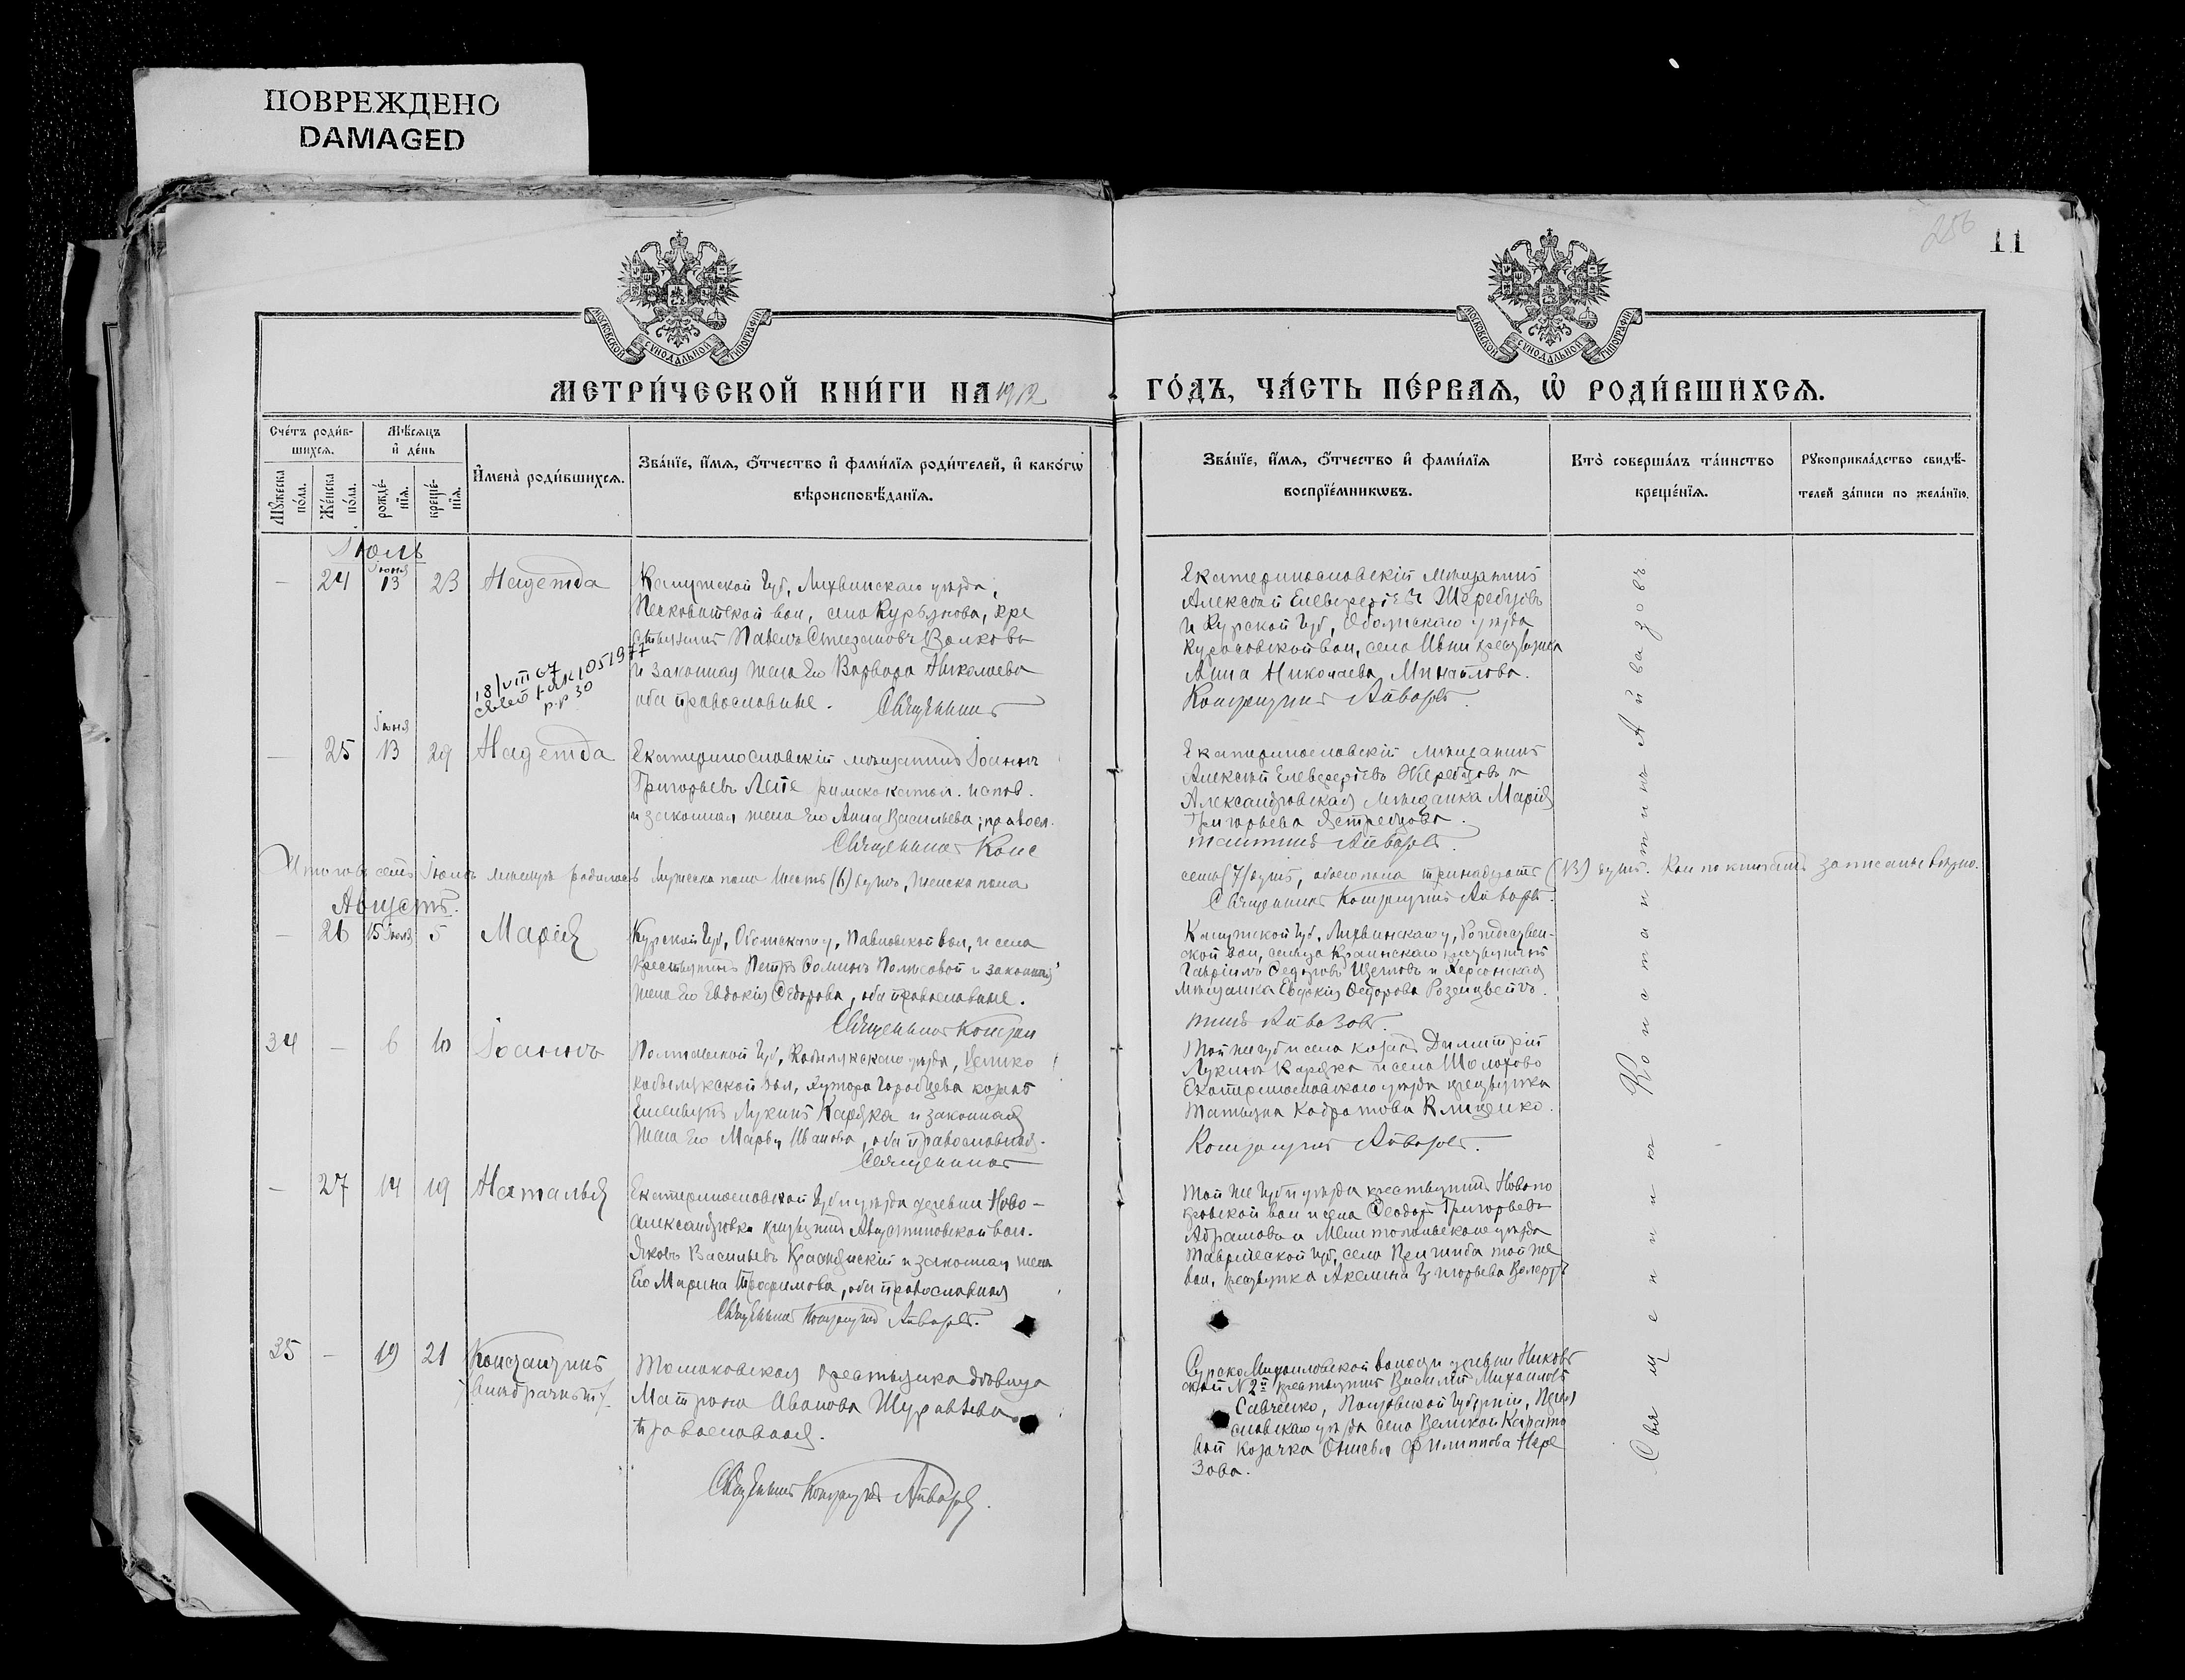 ПОВРЕЖДЕНО
DAMAGED
256
11
МОСКОВСКОЙ СѴНОДАЛЬНОЙ ТИПОГРАФІИ
МОСКОВСКОЙ СѴНОДАЛЬНОЙ ТИПОГРАФІИ
МЕТРИ́ЧЕСКОЙ КНИ́ГИ НА 1912
ГО́ДЪ, ЧА́СТЬ ПЕ́РВАЯ, Ѡ҆ РОДИ́ВШИХСЯ.
Сче́тъ роди́в-
шихся.
Мѣ́сяцъ
и҆ де́нь
Мꙋ́жеска по́ла.
Же́нска по́ла.
рожде́-нїя.
креще́-нїя.
И҆мена̀ роди́вшихся.
Зва́нїе, и҆́мя, ѻ҆́тчество и҆ фами́лїя роди́телей, и҆ како́гѡ
вѣроисповѣ́данїя.
Зва́нїе, и҆́мя, ѻ҆́тчество и҆ фами́лїя
воспрїе́мникѡвъ.
Кто̀ соверша́лъ та́инство
креще́нїя.
Рꙋкоприкла́дство свидѣ́-
телей за́писи по жела́нїю.
Іюль
— 24 Іюня 13 23 Надежда
Калужской губ, Лихвинскаго уѣзда,
вол, село Курѣзнова, кре
стьянинъ Павелъ Стефановъ Волковъ
и законная жена его Варвара Николаева
оба православные. Священникъ
18/VIII 67
р.р 30
Екатеринославскій мѣщанинъ
Алексѣй Елевѳеріевъ Жеребцовъ
и Курской губ, Обоянскаго уѣзда
вол, села Ивни крестьянка
Анна Николаева Михайлова.
Константинъ Айвазовъ.
— 25 Іюня 13 29 Надежда
Екатеринославскій мѣщанинъ Іоаннъ
Григорьевъ Лепе римско катол. испов.
и законная жена его Анна Васильева, правосл.
Священникъ Конс
Екатеринославскій мѣщанинъ
Алексѣй Елевѳеріевъ Жеребцовъ и
Александровская мѣщанка Марія
Григорьева Ястребцова.
тантинъ Айвазовъ.
Итого въ семъ Іюлѣ мѣсяцѣ родилось мужеска пола шесть (6) душъ, женска пола
семь (7) душъ, обоего пола тринадцать (13) душъ. Кои по книгамъ записаны вѣрно.
Священникъ Константинъ Айвазовъ.
Августъ.
— 26 15 Іюля 5 Марія
Курской губ, Обоянскаго у, Павловской вол, и села
крестьянинъ Петръ Ѳоминъ и законная
жена его Евдокія Ѳедорова, оба православные.
Священникъ Констан
Калужской губ, Лихвинскаго у, Рождествен-
ской вол, сельца Краинскаго крестьянинъ
Гавріилъ Ѳедоровъ Щегловъ и Херсонская
мѣщанка Евдокія Ѳедорова Розенцвейгъ.
тинъ Айвазовъ.
34 — 6 10 Іоаннъ
Полтавской губ, Кобелякскаго уѣзда, Велико
кобелякской вол, хутора Городцева козакъ
Лукинъ Каряка и законная
жена его Марѳа Иванова, оба православные.
Священникъ
Той же губ и села козакъ Димитрій
Лукинъ Каряка и села Шолохово
Екатеринославскаго уѣзда крестьянка
Татьяна Кодратова Клименко.
Константинъ Айвазовъ.
— 27 14 19 Наталья
Екатеринославской губ и уѣзда деревни Ново-
александровка крестьянинъ Августиновской вол.
Яковъ Васильевъ и законная жена
его Марина Трофимова, оба православныя
Священникъ Константинъ Айвазовъ.
Той же губ и уѣзда крестьянинъ Новопо
кровской вол и села Ѳеодотъ Григорьевъ
Абрамовъ и Мелитопольскаго уѣзда
Таврической губ, села Пришиба той же
вол, крестьянка Акелина Григорьева
35 — 19 21 Константинъ
/внѣбрачный/
Томаковская крестьянка дѣвица
Матрона Иванова Журавлева
православная.
Священникъ Константинъ Айвазовъ.
Сурско Михаиловской волости деревни
№ 2й крестьянинъ Василій Михайловъ
Савченко, Полтавской губерніи,
уѣзда села Великой
козачка Онисья Филиппова Нере
зова.
Священникъ Константинъ Айвазовъ